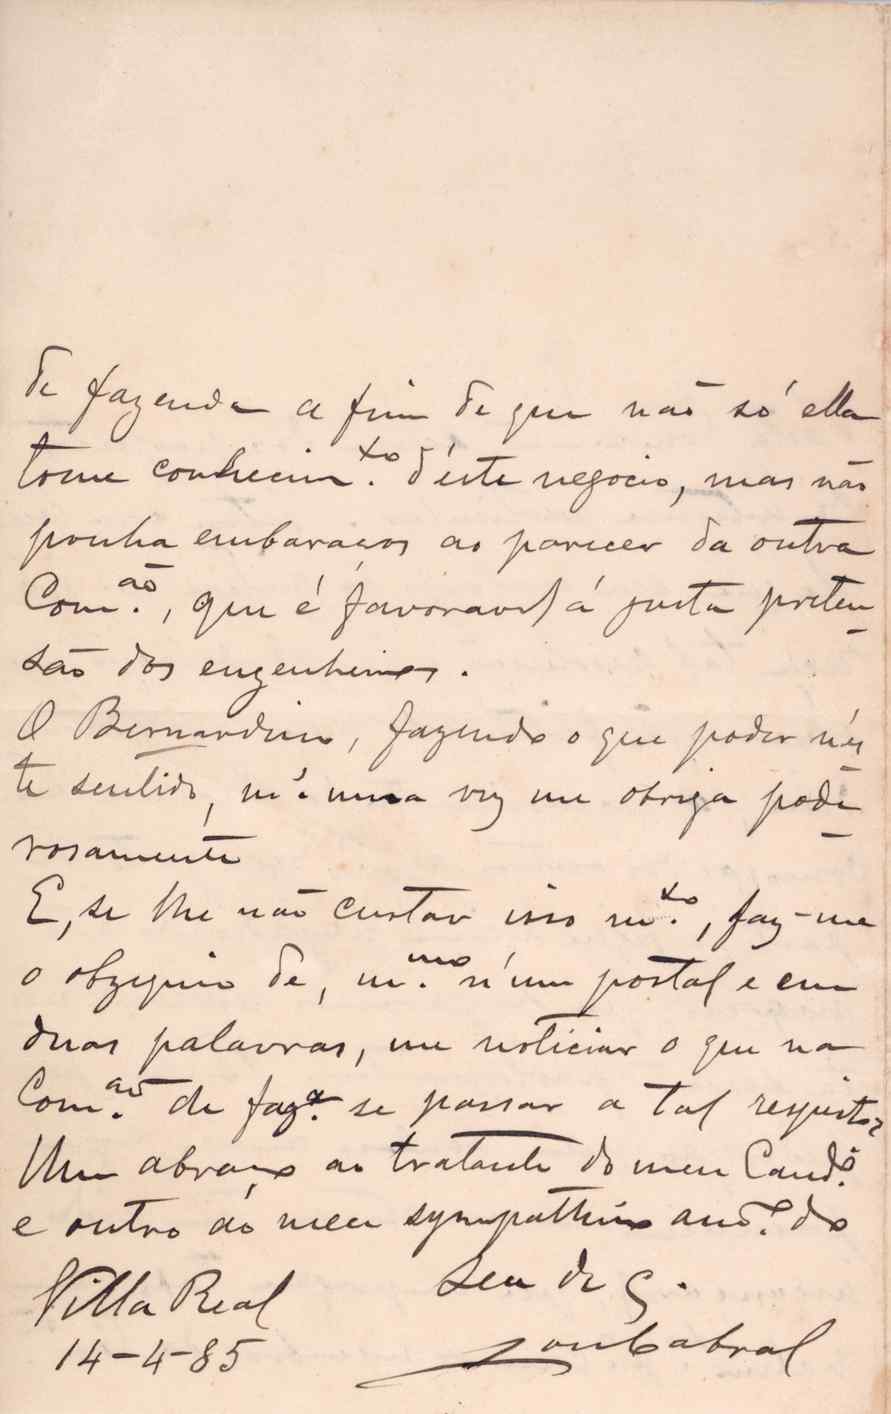 de fazenda a fim de que não só ella
tome conhecim.to d'éste negocio, mas não
ponha embaraços ao parecer da outra
Com.ão, que é favoravel á justa preten-
são dos engenheiros.
O Bernardino, fazendo o que poder n'és
te sentido, m.s uma vez me obriga pode-
rosamente
E, se lhe não custar isso m.to, faz-me
o obzequio de, m.mo n'um postal e em
duas palavras, me noticiar o que na
Com.ão de faz.a se passar a tal respeito?
Um abraço ao tratante do meu Cand.o
e outro ao meu sympathico am.o do
Seu de C.
Villa Real
14-4-85
Cabral